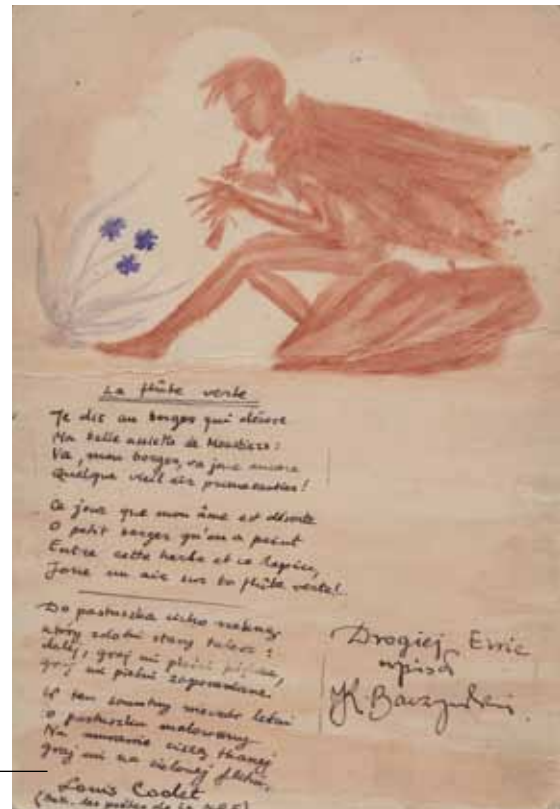 La flûte verte
Je dis au berger qui décore
Ma belle assiette de Moustiers:
Va, mon berger, va joue encore
Quelque vieil air primesautier!
Ce jour que mon âme est déserte
O petit berger qu'on a peint
Entre cette herbe et ce lapin,
Joue un air sur ta flûte verte!
Do pastuszka cicho
który zdobi stary talerz:
dalej, graj mi pieśń
graj mi pieśni zapomniane.
W ten smutny wieczór letni
o pastuszku malowany
Na ciszą
graj mi na zielonej fletni.
Louis Codet
(les poètes de la N.R.F.)
Drogiej Ewie
wpisał
K Baczyński